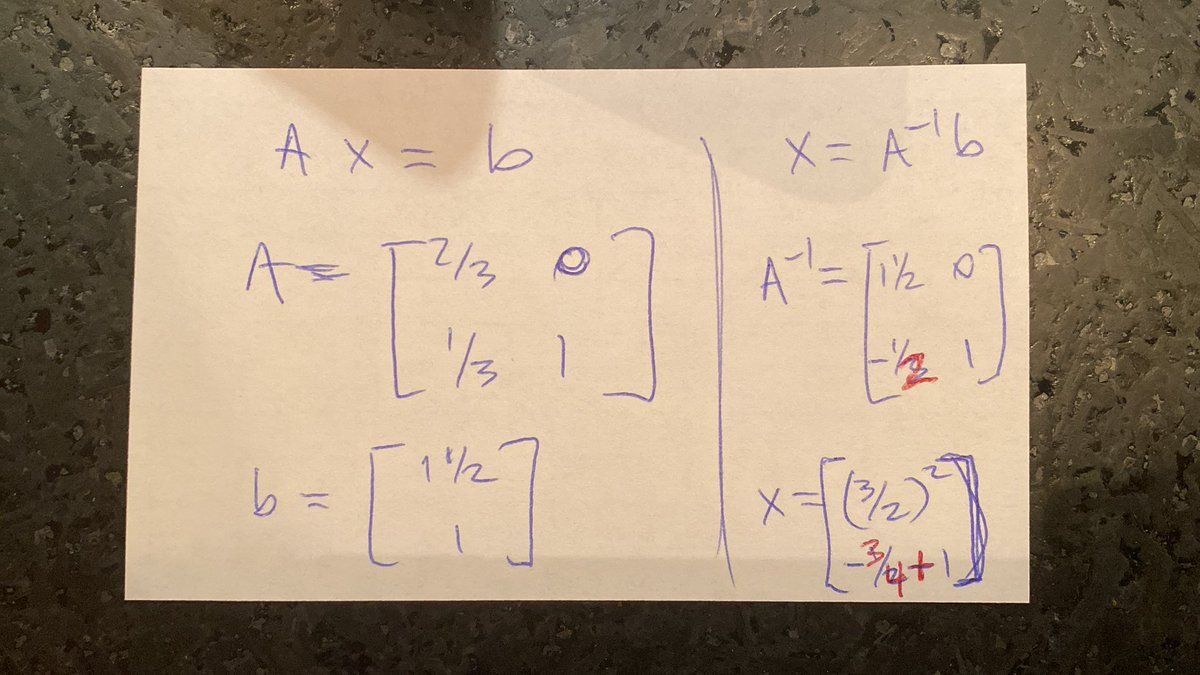 A x = b
A = [ 2/3 0
1/3 1 ]
b = [ 1 1/2
1 ]
x = A⁻¹b
A⁻¹ = [ 1 1/2 0
-1/2 1 ]
x = [ (3/2)²
-3/4 + 1 ]